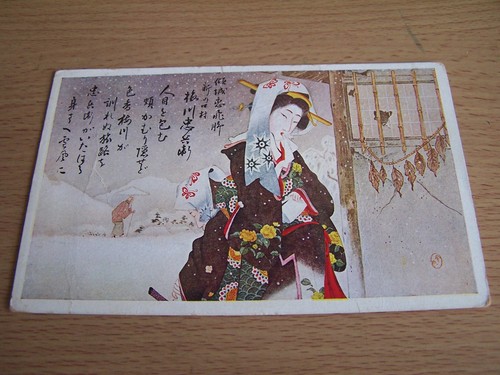 傾城恋飛脚
新の口村
梅川忠兵衛
人目を包む
頬かむり隠せど
色香梅川が
馴れぬ旅路を
忠兵衛がいたはる
身さへ雪風に